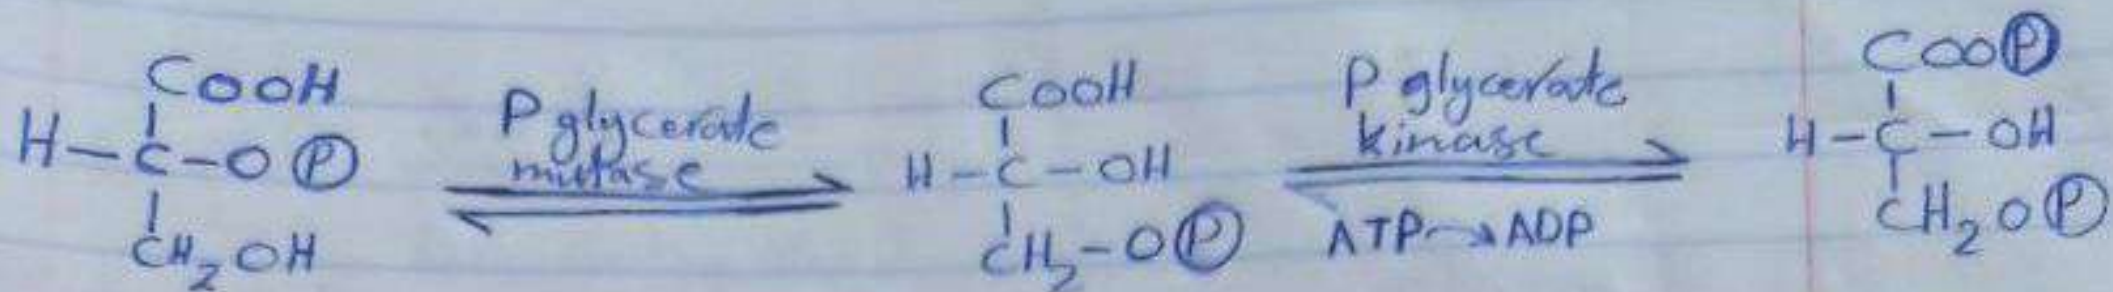 COOH
H-C-O(P)
CH2OH
P glycerate
mutase
COOH
H-C-OH
CH2-O(P)
P glycerate
kinase
ATP→ADP
COO(P)
H-C-OH
CH2O(P)